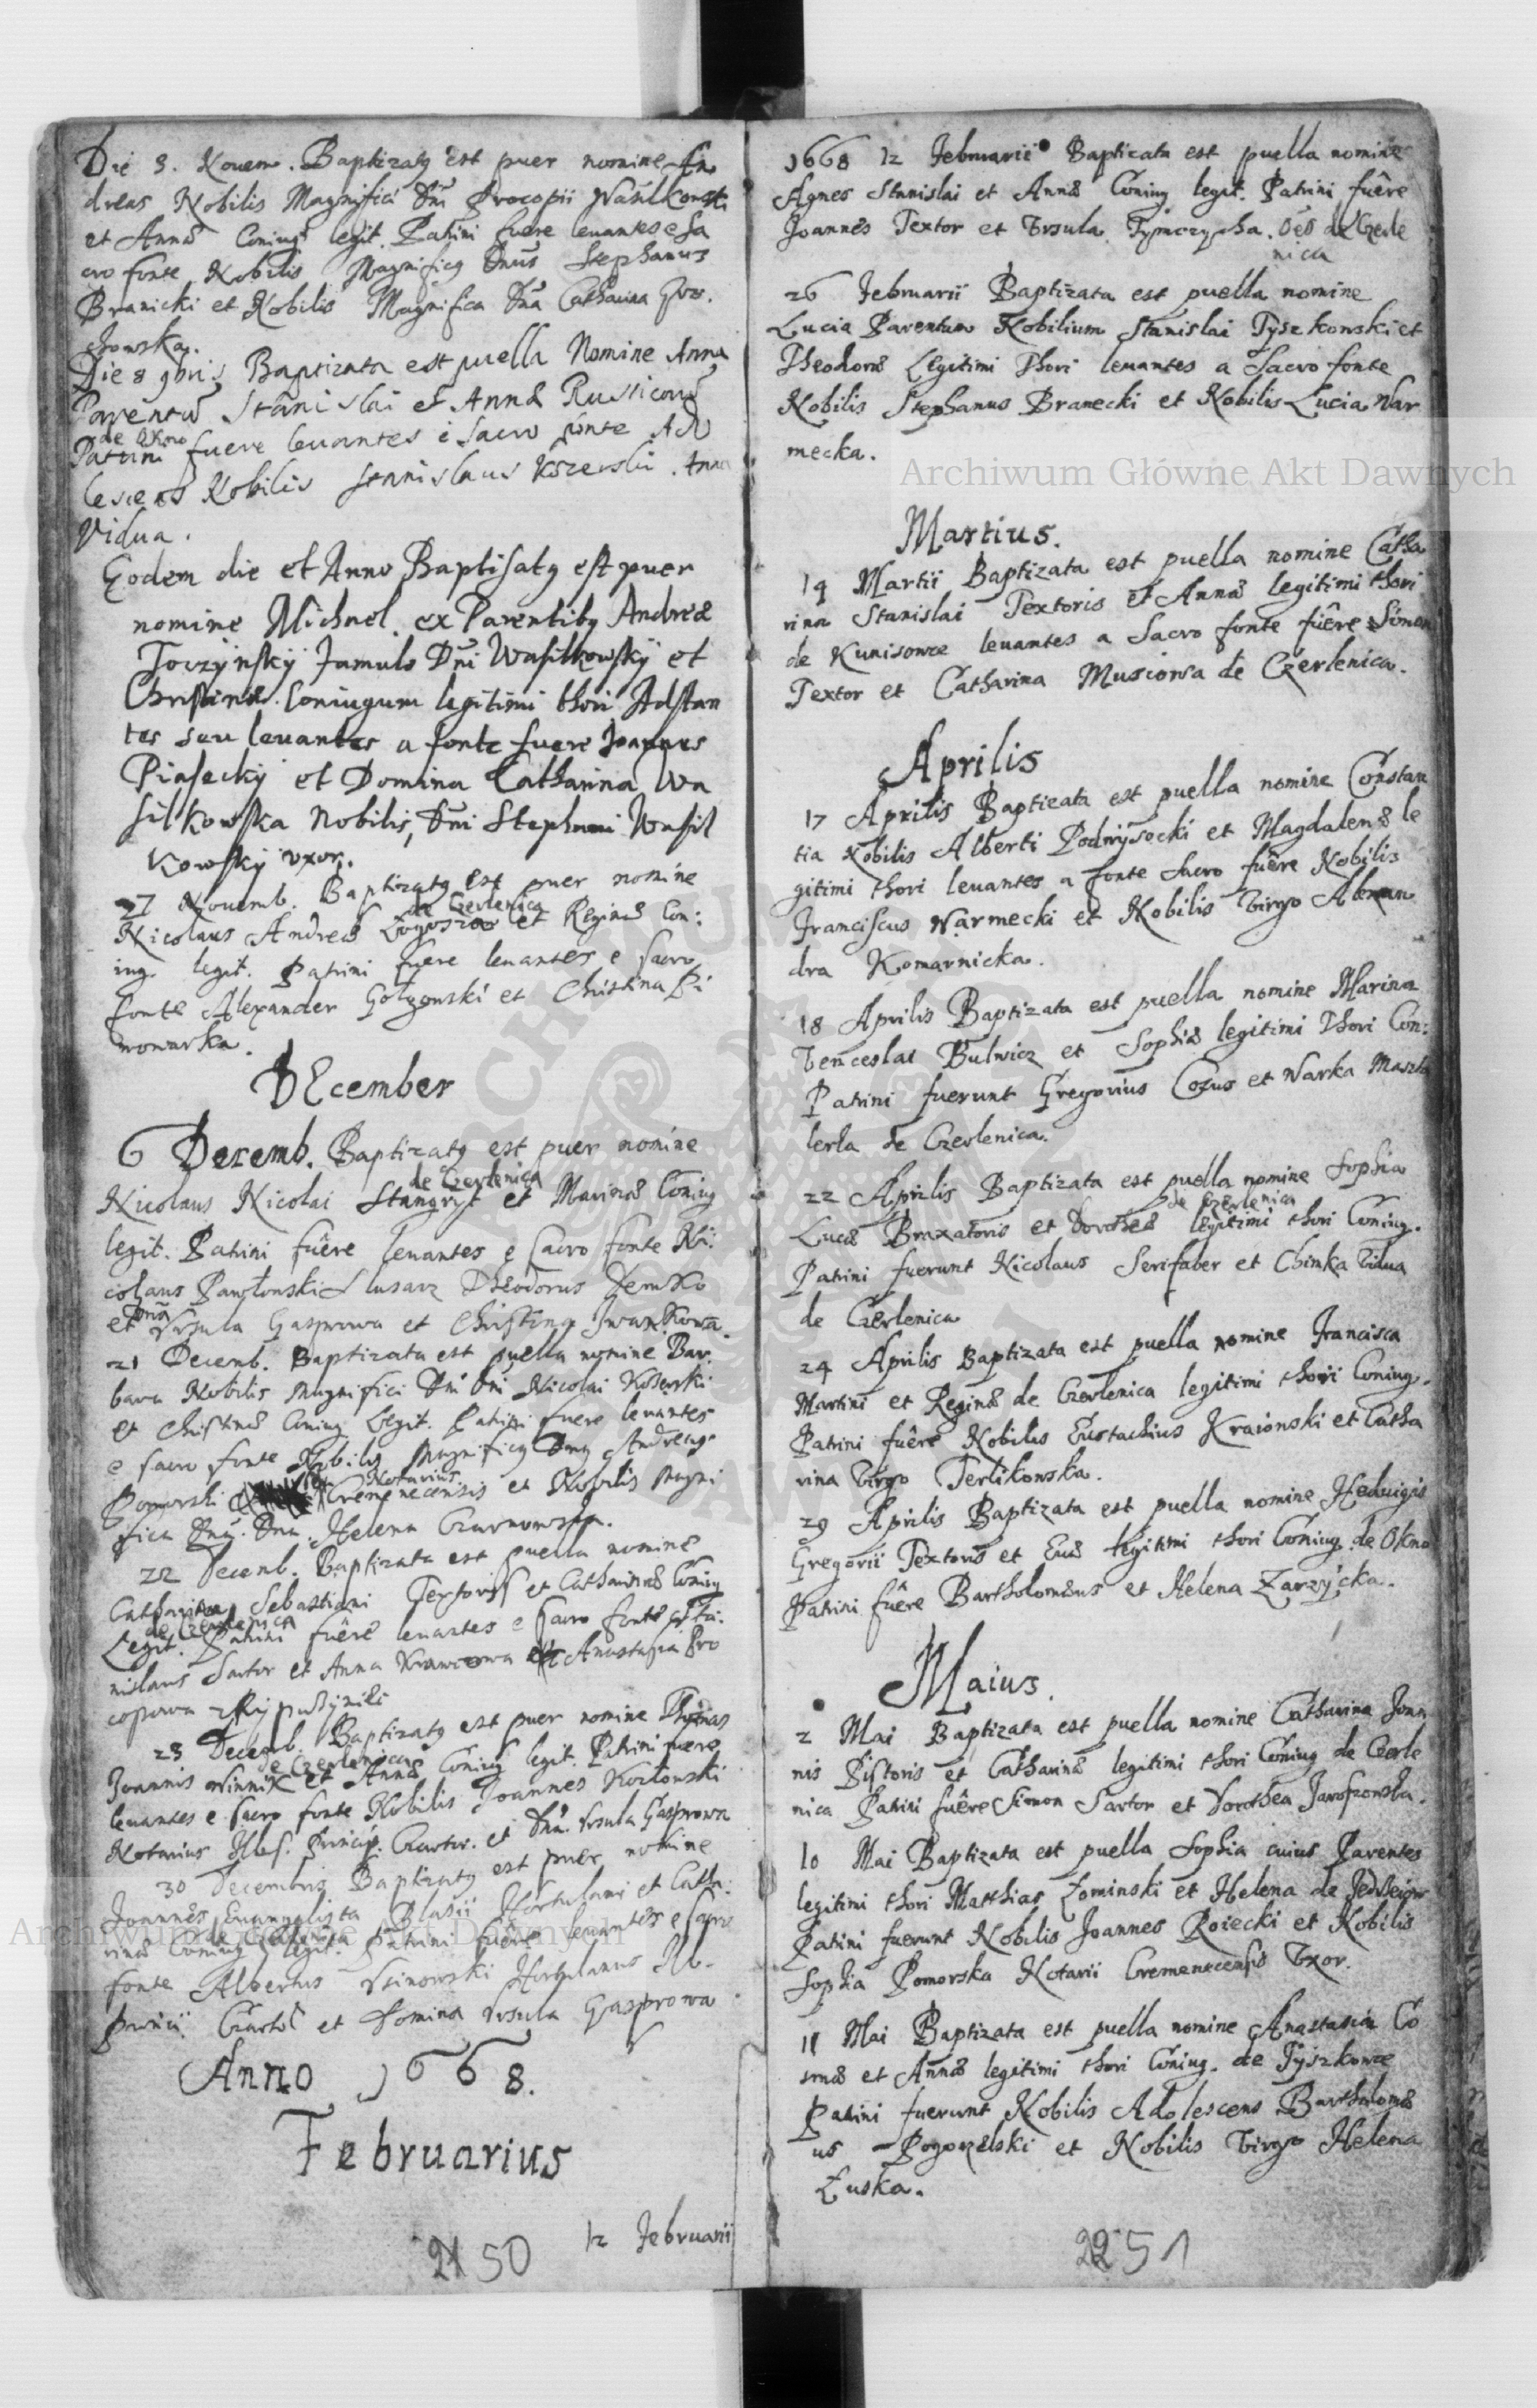 Die 3. Novem. Baptizatq est puer nomine An
dreas Nobilis Magnifici Dni Procopii Wasilkowski
et Annæ Coniug legit. Patrini fuere levantes e Sa
cro fonte Nobilis Magnificq Dnus Stephanus
Branicki et Nobilis Magnifica Dna Catharina
chowska.
Die 8 9bris Baptizata est puella Nomine Anna
Parentū Stanislai et Annæ Rusticorū
de Okno
Patrini fuere levantes e Sacro fonte Ado
lescens Nobilis Stanislaus Kozerski. Anna
Vidua.
Eodem die et Anno Baptisatq est puer
nomine Michael. ex Parentibq Andreæ
Toczynsky famulo Dni Wasilkowsky et
Christinæ. Coniugum legitimi thori Adstan
tes seu levantes a fonte fuere Joannes
Piasecky et Domina Catharina Wa
silkowska Nobilis, Dni Stephani Wasil
kowsky uxor.
27 Novemb. Baptizatq Est puer nomine
de Czerlenica
Nicolaus Andreæ et Reginæ Con:
iug. legit. Patrini fuere levantes e sacro
fonte Alexander et Christina Pi
wowarka.
DEcember
6 Decemb. Baptizatq est puer nomine
de Czerlenica
Nicolaus Nicolai Stangryt et Marinæ Coniug
legit. Patrini fuêre levantes e sacro fonte Ni:
colaus Pawłonski Slusarz Theodorus Demko
et Dna Ursula Gasprowa et Christina Iwankowa.
21 Decemb. Baptizata est puella nomine Bar
bara Nobilis Magnifici Dni Dni Nicolai Koserski
et Christinæ Coniug Legit. Patrini fuere levantes
e sacro fonte Nobilis Magnificq Dnq Andreasq
Notarius
Pomorski Cremenecensis et Nobilis Magni
fica Dna. Dna. Helena Czarnowska.
22 Decemb. Baptizata est puella nomine
Catharina Sebastiani Textoris et Catharinæ Coniug
de Czerlenica
Legit. Patrini fuêre levantes e sacro fonte Sta:
nislaus Sartor et Anna Krawcowa et Anastasia Pro
copowa
23 Decemb. Baptizatq est puer nomine Thomas
de Czerlenica
Joannis Winnik et Annæ Coniug legit. Patrini fuere
levantes e sacro fonte Nobilis Joannes Kozlowski
Notarius Illes. Princip. Czartor. et Dna. Ursula Gasprowa
30 Decembris Baptizatq est puer nomine
Joannês Evangelista Blasii Hortulani et Catha:
rinæ Coniug legit. Patrini fuêre levantes e sacro
fonte Albertus Usinowski Hortulanus Ill.
Princi. Czarto et Domina Ursula Gasprowa
Anno 1668.
Februarius
12 Februarii
21 50
1668 12 Februarii Baptizata est puella nomine
Agnes Stanislai et Annæ Coniug legit. Patrini fuêre
Joannes Textor et Ursula Tymczycha. oēs de Czerle
nica
26 Februarii Baptizata est puella nomine
Lucia Parentum Nobilium Stanislai Tyszkowski et
Theodoræ Legitimi Thori levantes a Sacro fonte
Nobilis Stephanus Branecki et Nobilis Lucia War
mecka.
Martius.
14 Martii Baptizata est puella nomine Catha
rina Stanislai Textoris et Annæ legitimi thori
de Kunisowce levantes a Sacro fonte fuêre Simon
Textor et Catharina Musiowa de Czerlenica.
Aprilis
17 Aprilis Baptizata est puella nomine Constan
tia Nobilis Alberti Podwysocki et Magdalenæ le
gitimi thori levantes a fonte Sacro fuêre Nobilis
Franciscus Warmecki et Nobilis Virgo Alexan
dra Komarnicka.
18 Aprilis Baptizata est puella nomine Marina
Venceslai Bulwicz et Sophiæ legitimi Thori Con:
Patrini fuerunt Gregorius Cozus et Warka Maszta
lerka de Czerlenica.
22 Aprilis Baptizata est puella nomine Sophia
de Czerlenica
Lucæ Braxatoris et Dorotheæ legitimi thori Coniug.
Patrini fuerunt Nicolaus Serifaber et Chimka Vidua
de Czerlenica
24 Aprilis Baptizata est puella nomine Francisca
Martini et Reginæ de Czerlenica legitimi thori Coniug.
Patrini fuêre Nobilis Eustachius Kraionski et Catha
rina Virgo Terlikowska.
29 Aprilis Baptizata est puella nomine Heduigis
Gregorii Textoris et Evæ legitimi thori Coniug. de Okno
Patrini fuêre Bartholomæus et Helena Zarzycka.
Maius.
2 Mai Baptizata est puella nomine Catharina Joan
nis Pistoris et Catharinæ legitimi thori Coniug de Czerle
nica Patrini fuêre Simon Sartor et Dorothea Jaroszowska.
10 Mai Baptizata est puella Sophia cuius Parentes
legitimi thori Matthias Łominski et Helena de
Patrini fuerunt Nobilis Joannes Roiecki et Nobilis
Sophia Pomorska Notarii Cremenecensis Uxor.
11 Mai Baptizata est puella nomine Anastasia Co
smæ et Annæ legitimi thori Coniug. de Tyszkowce
Patrini fuerunt Nobilis Adolescens Bartholomæ
us Pogorzelski et Nobilis Virgo Helena
Łuska.
22 51
Archiwum Główne Akt Dawnych
Archiwum Główne Akt Dawnych